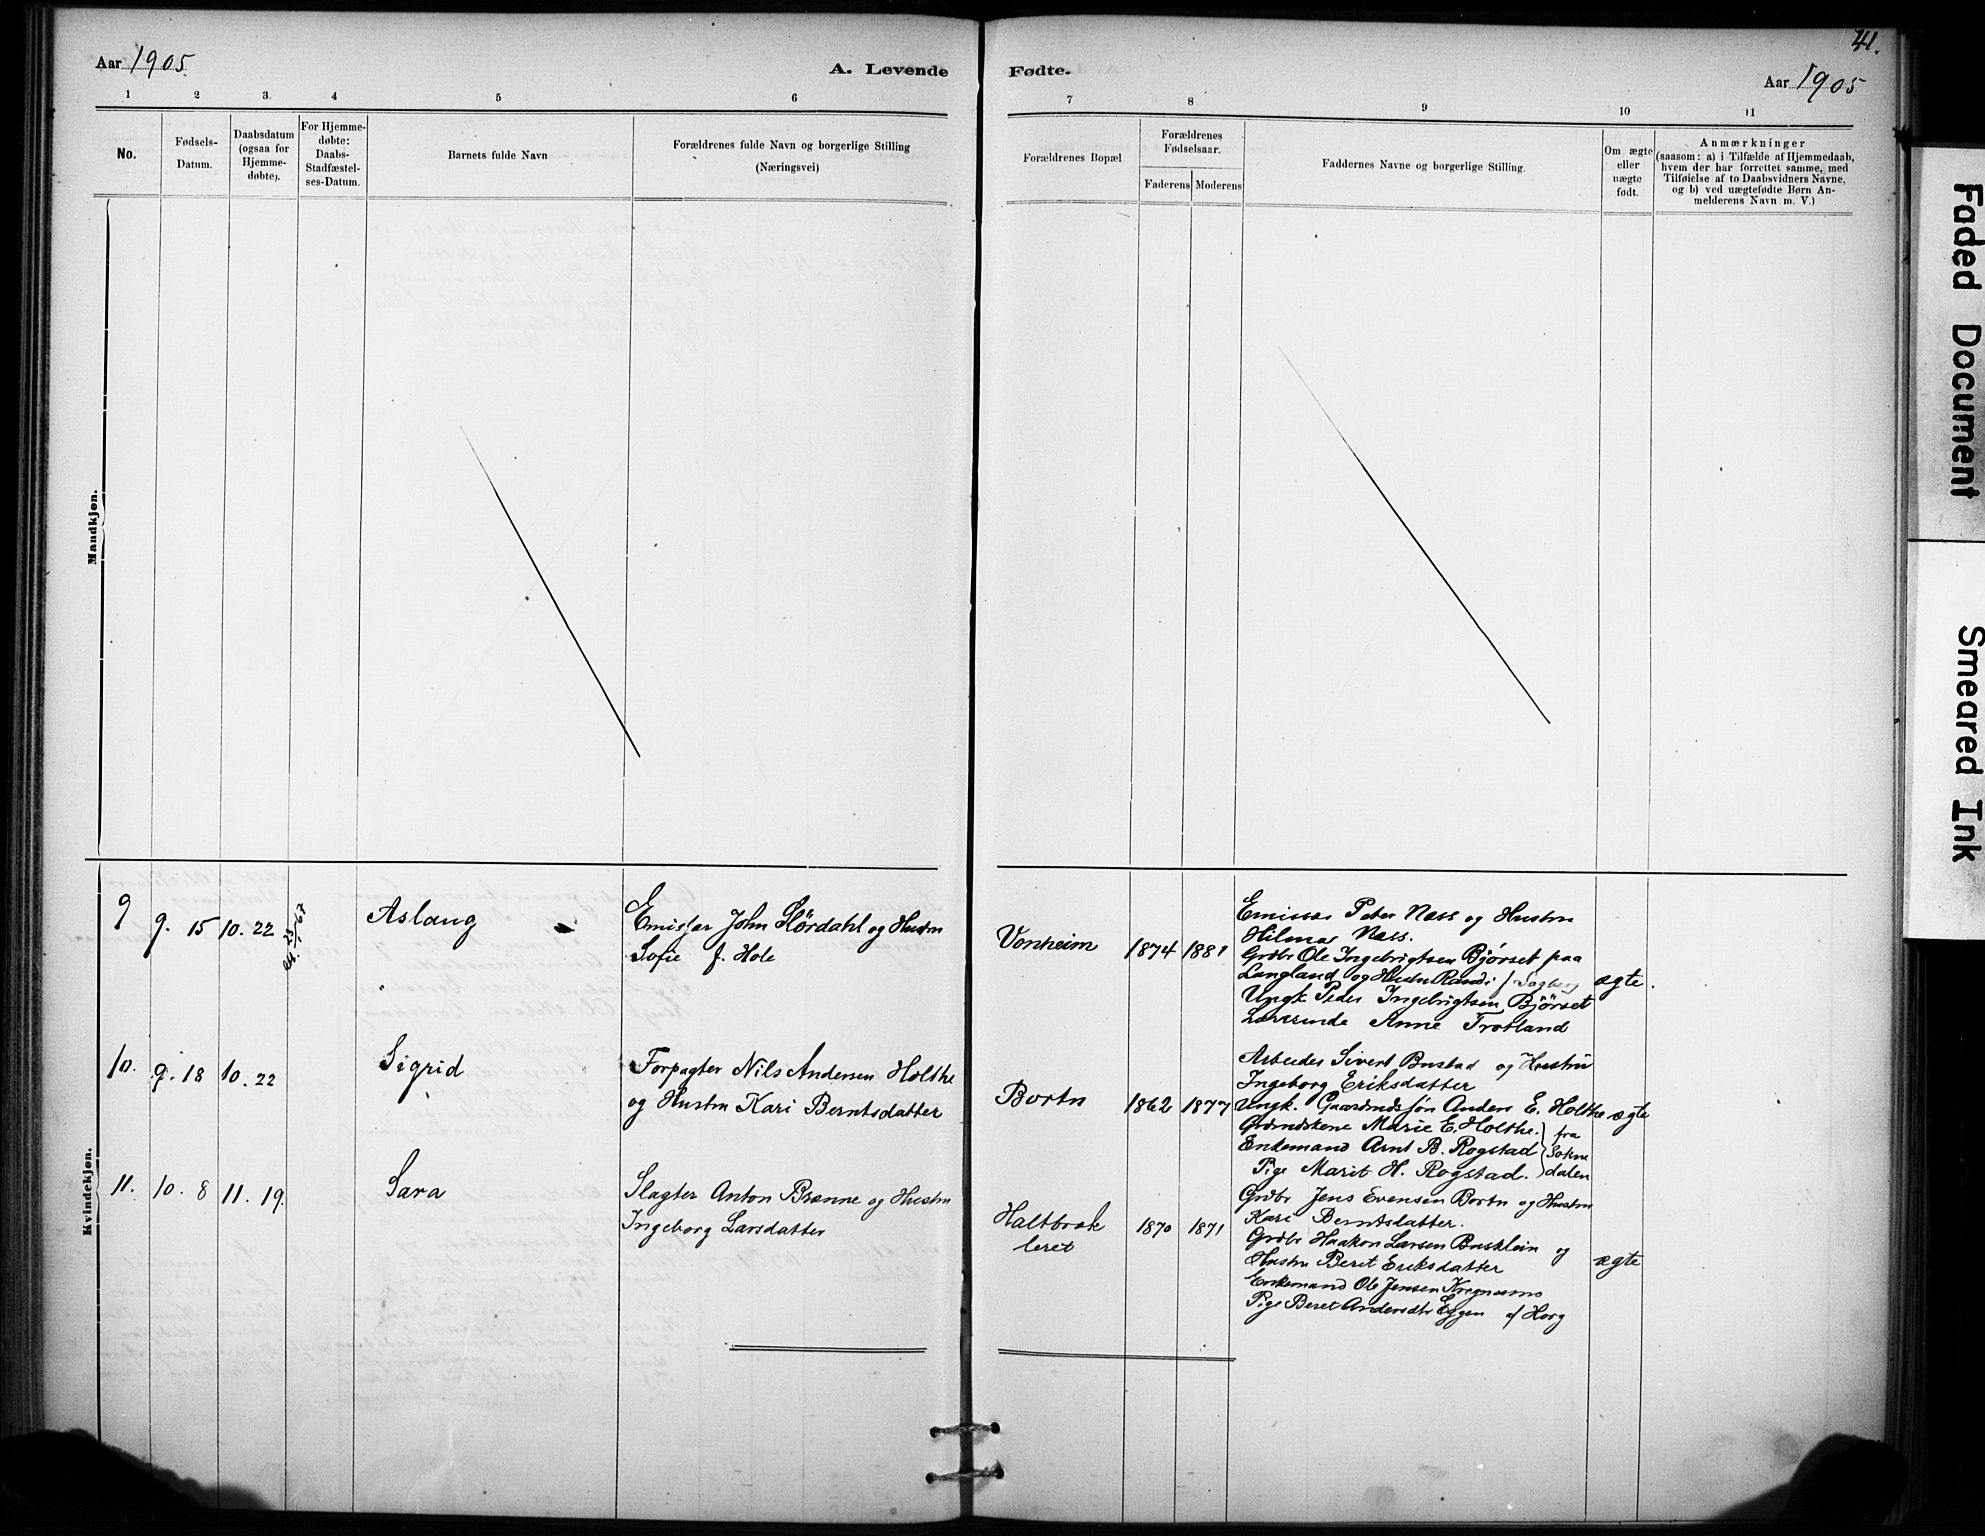 41.
Aar 1905
A. Levende Fødte.
Aar 1905
1 2 3. 4 5 6 7 8 9 10 11
No.
Fødsels-
Datum.
Daabsdatum
(ogsaa for
Hjemme-
døbte).
For Hjemme-
døbte:
Daabs-
Stadfæstel-
ses-Datum.
Barnets fulde Navn
Forældrenes fulde Navn og borgerlige Stilling
(Næringsvei)
Forældrenes Bopæl
Forældrenes
Fødselsaar.
Faderens
Moderens
Faddernes Navne og borgerlige Stilling.
Om ægte
eller
uægte
født.
Anmærkninger
(saasom: a) i Tilfælde af Hjemmedaab,
hvem der har forrettet samme, med
Tilføielse af to Daabsvidners Navne,
og b) ved uægtefødte Børn An-
melderens Navn m. V.)
Mandkjøn.
Kvindekjøn.
9
9. 15
10. 22
Aslaug
Emissar John Størdahl og Hustru
Sofie f. Hole
Vonheim
1874
1881
Emissær Peter Næss og Hustru
Hilmar Næss.
Grdbr Ole Ingebrigtsen Bjørset paa
Langland og Hustru Randi
Ungk Peder Ingebrigtsen Bjørset
Lærerinde Anne Trotland
ægte.
10.
9. 18
10. 22
Sigrid
Forpagter Nils Andersen Holthe
og Hustru Kari Berntsdatter
Bortn
1862
1877
Arbeider Sivert Bustad og Hustru
Ingeborg Eriksdatter
Ungk. Gaardmdsøn Anders E. Holthe
Grdmdskone Marie E. Holthe.
Enkemand Arnt B. Rogstad
Pige Marit H. Rogstad.
fra
Sokne
dalen
ægte
11.
10. 8
11. 19.
Sara
Slagter Anton Brænne og Hustru
Ingeborg Larsdatter
Haltbrak
leret
1870
1871
Grdbr Jens Evensen Bortn og Hustru
Kari Berntsdatter.
Grdbr Haakon Larsen Busklein og
Hustru Beret Eriksdatter
Enkemand Ole Jensen Kregnesmo
Pige Beret Andersdtr Eggen af Horg
ægte
Faded Document
Smeared Ink